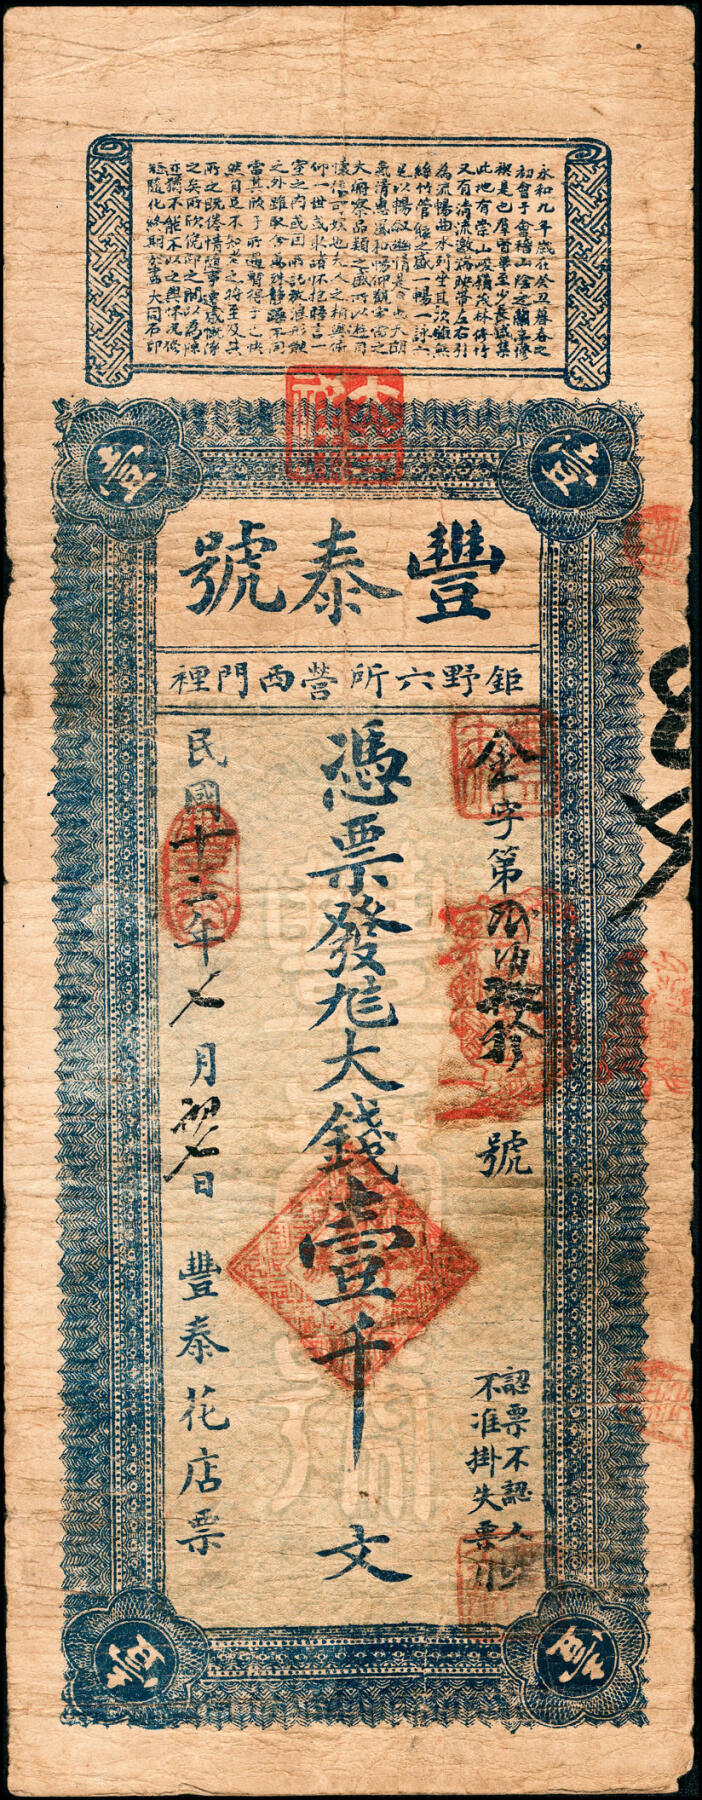 永和九年歲在癸丑暮春之
初會于會稽山陰之蘭亭修
禊是也羣賢畢至少長咸集
此地有崇山峻嶺茂林修竹
又有清流激湍映帶左右引
為流暢曲水列坐其次雖無
絲竹管絃之盛一暢一詠亦
足以暢叙幽情是日也天朗
氣清惠風和暢仰觀宇宙之
大俯察品類之盛所以遊目
懷信可娱也夫人之相與俯
仰一世或取諸懷抱晤言一
室之内或因所託放浪形骸
之外雖取舍萬殊靜躁不同
當其欣于所遇暫得于己快
然自足不知老之將至及其
所之既倦情隨事遷感慨係
之矣所欣俛仰之間以為陳
迹猶不能不以之興懷況脩
短隨化終期於盡大同石印
壹
壹
豐泰號
鉅野六所營西門裡
金字第貳佰號
認票不認人
不准掛失票
憑票發兌大錢壹千文
民國十二年七月初七日
豐泰花店票
壹
壹